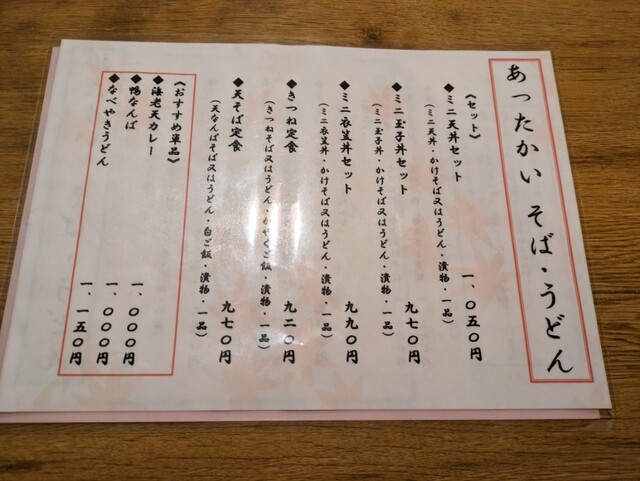 あったかい そば・うどん
《セット》
◆ミニ天丼セット 一、〇五〇円
（ミニ天丼・かけそば又はうどん・漬物・一品）
◆ミニ玉子丼セット 九七〇円
（ミニ玉子丼・かけそば又はうどん・漬物・一品）
◆ミニ衣笠丼セット 九九〇円
（ミニ衣笠丼・かけそば又はうどん・漬物・一品）
◆きつね定食 九二〇円
（きつねそば又はうどん・かやくご飯・漬物・一品）
◆天そば定食 九七〇円
（天なんばそば又はうどん・白ご飯・漬物・一品）
《おすすめ単品》
◆海老天カレー 一、〇〇〇円
◆鴨なんば 一、〇〇〇円
◆なべやきうどん 一、一五〇円